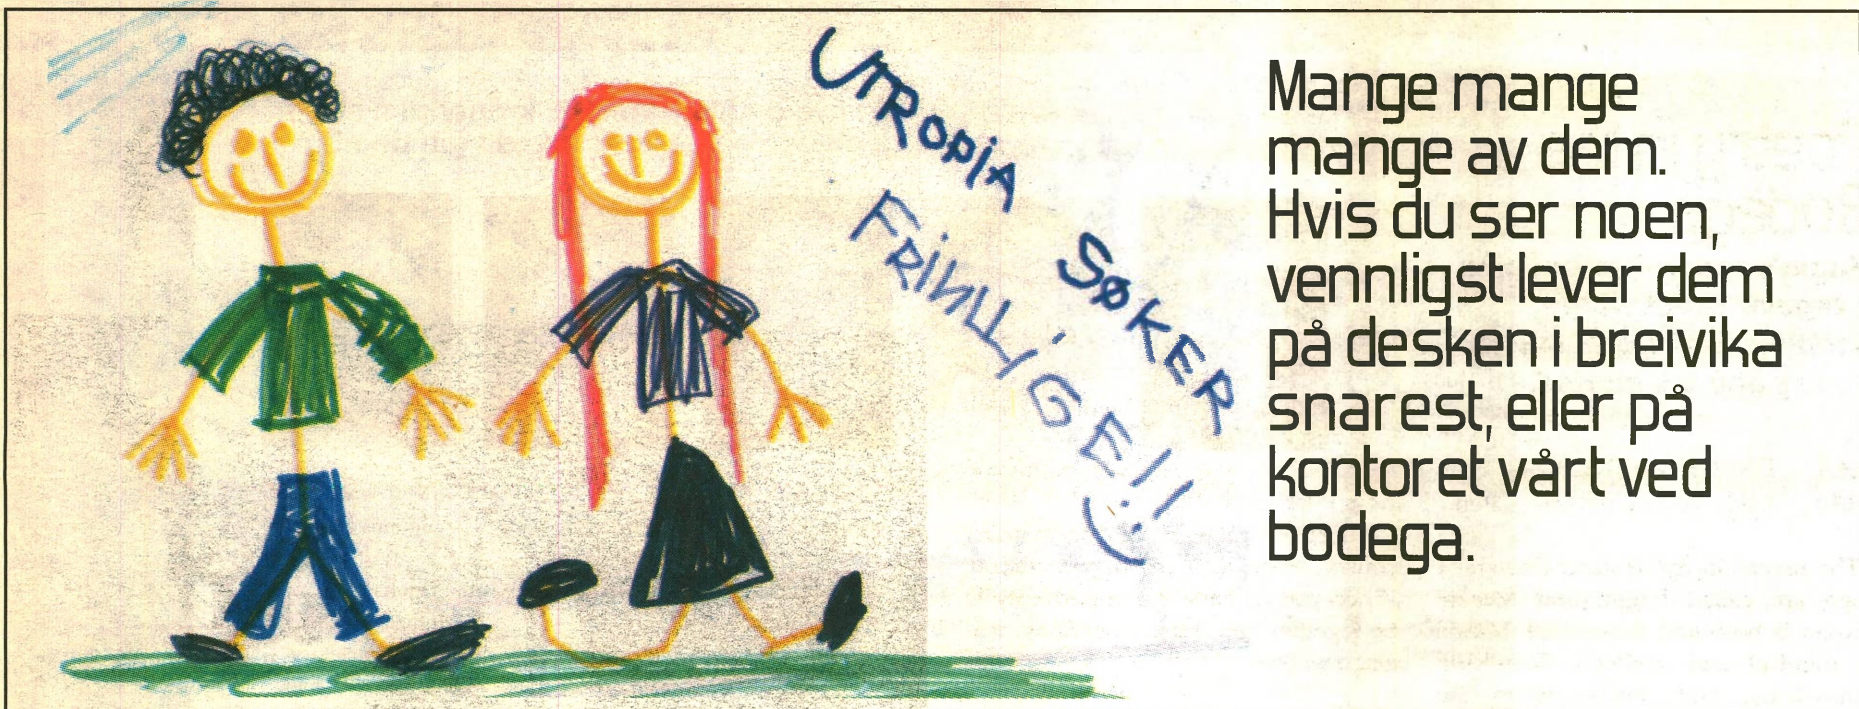 UTROPiA
SØKER
FRiViLLiGE!!
Mange mange
mange av dem.
Hvis du ser noen,
vennligst lever dem
på desken i breivika
snarest, eller på
kontoret vårt ved
bodega.